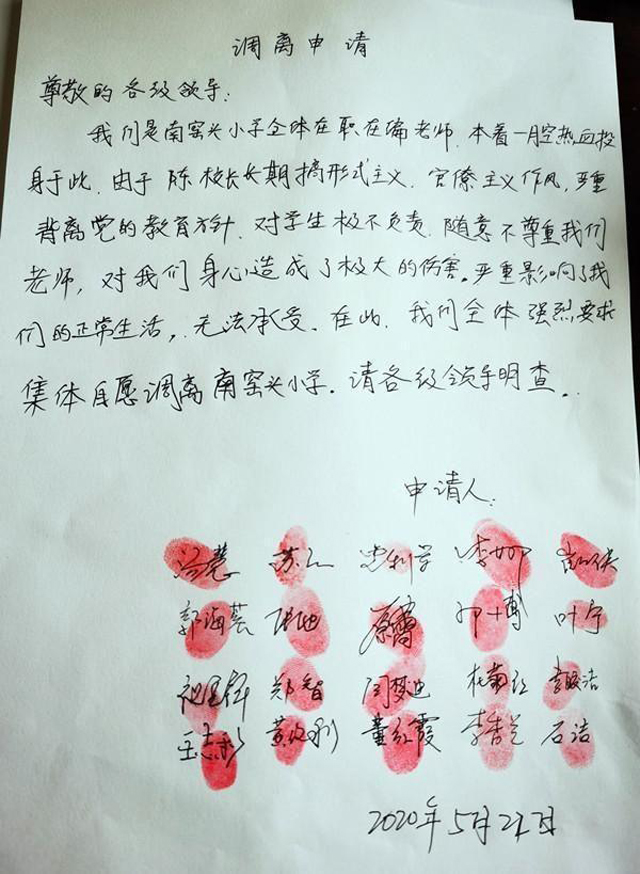 调离申请
尊敬的各级领导:
我们是南窑头小学全体在职在编老师.本着一腔热血投
身于此.由于陈校长长期搞形式主义.官僚主义作风,严重
背离党的教育方针.对学生极不负责.随意不尊重我们
老师,对我们身心造成了极大的伤害。严重影响了我
们的正常生活,.无法承受.在此.我们全体强烈要求
集体自愿调离南窑头小学.请各级领导明查..
申请人:
郭海芸 叶宁
郑智 闫梦迪
董红霞 李香兰 石洁
2020年5月21日